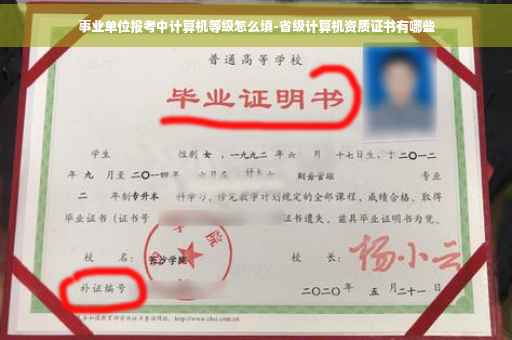 事业单位报考中计算机等级怎么填-省级计算机资质证书有哪些
普通高等学校
毕业证明书
学生 性别 女，一九九二年 六 月 十七日生，于二〇一二
年 九 月至二〇一四 年 六月在 财务管理 专业
二 年制专升本 科学习，修完教学计划规定的全部课程，成绩合格，取得
毕业证书（证书号 证书遗失，兹具毕业证明书为凭。
校 名：长沙学院 校 长：杨小云
补证编号 二〇二〇年 五 月二十一日
http://www.chsi.com.cn